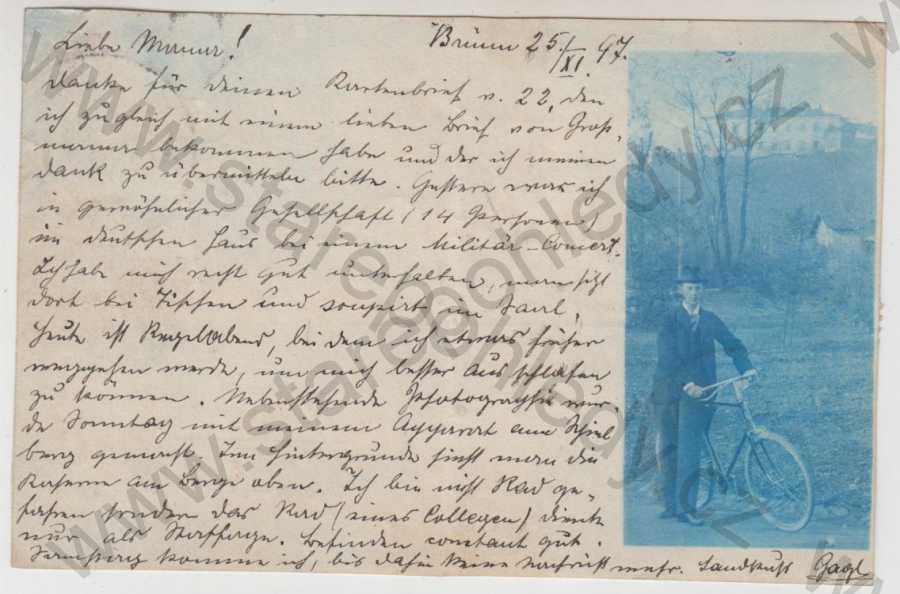 Liebe Mama! Brünn 25./XI. 97.
Danke für deinen Kartenbrief v. 22, den
ich zugleich mit einem lieben Brief von Groß-
mama bekommen habe und der ich meinen
Dank zu übermitteln bitte. Gestern war ich
in gewöhnlicher Gesellschaft (14 Personen)
im deutschen Haus bei einem Militär-Concert.
Ich habe mich recht gut unterhalten, man sitzt
dort bei Tischen und soupirt im Saal.
Heute ist Kegelabend, bei dem ich etwas früher
weggehen werde, um mich besser ausschlafen
zu können. Nebenstehende Photographie wur-
de Sonntag mit meinem Apparat am Spiel
berg gemacht. Im Hintergrunde sieht man die
Kaserne am Berge oben. Ich bin nicht Rad ge-
fahren sondern das Rad (eines Collegen) diente
nur als Staffage. Befinden constant gut.
Samstag komme ich, bis dahin keine Nachricht mehr. Handkuß
www.starepohledy.cz
www.starepohledy.cz